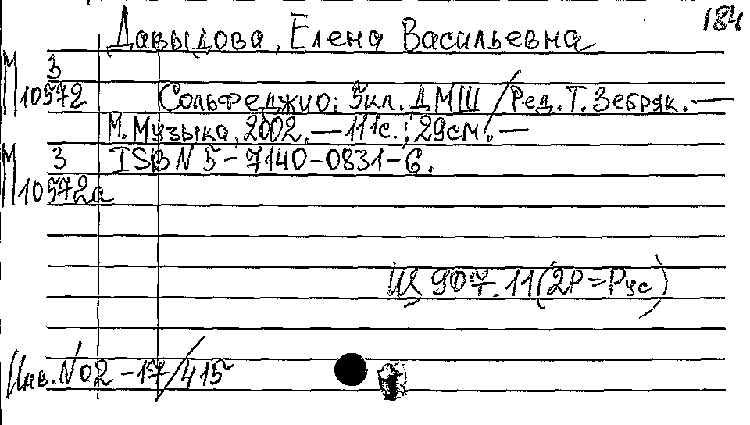 184
Давыдова, Елена Васильевна
М 3
10572 Сольфеджио: 5кл. ДМШ / Ред. Т. Зебряк. —
М. Музыка, 2002. — 111с.; 29см. —
М 3 ISBN 5-7140-0831-6.
10572а
Щ 907.11(2Р=Рус)
Инв. N 02-17/415